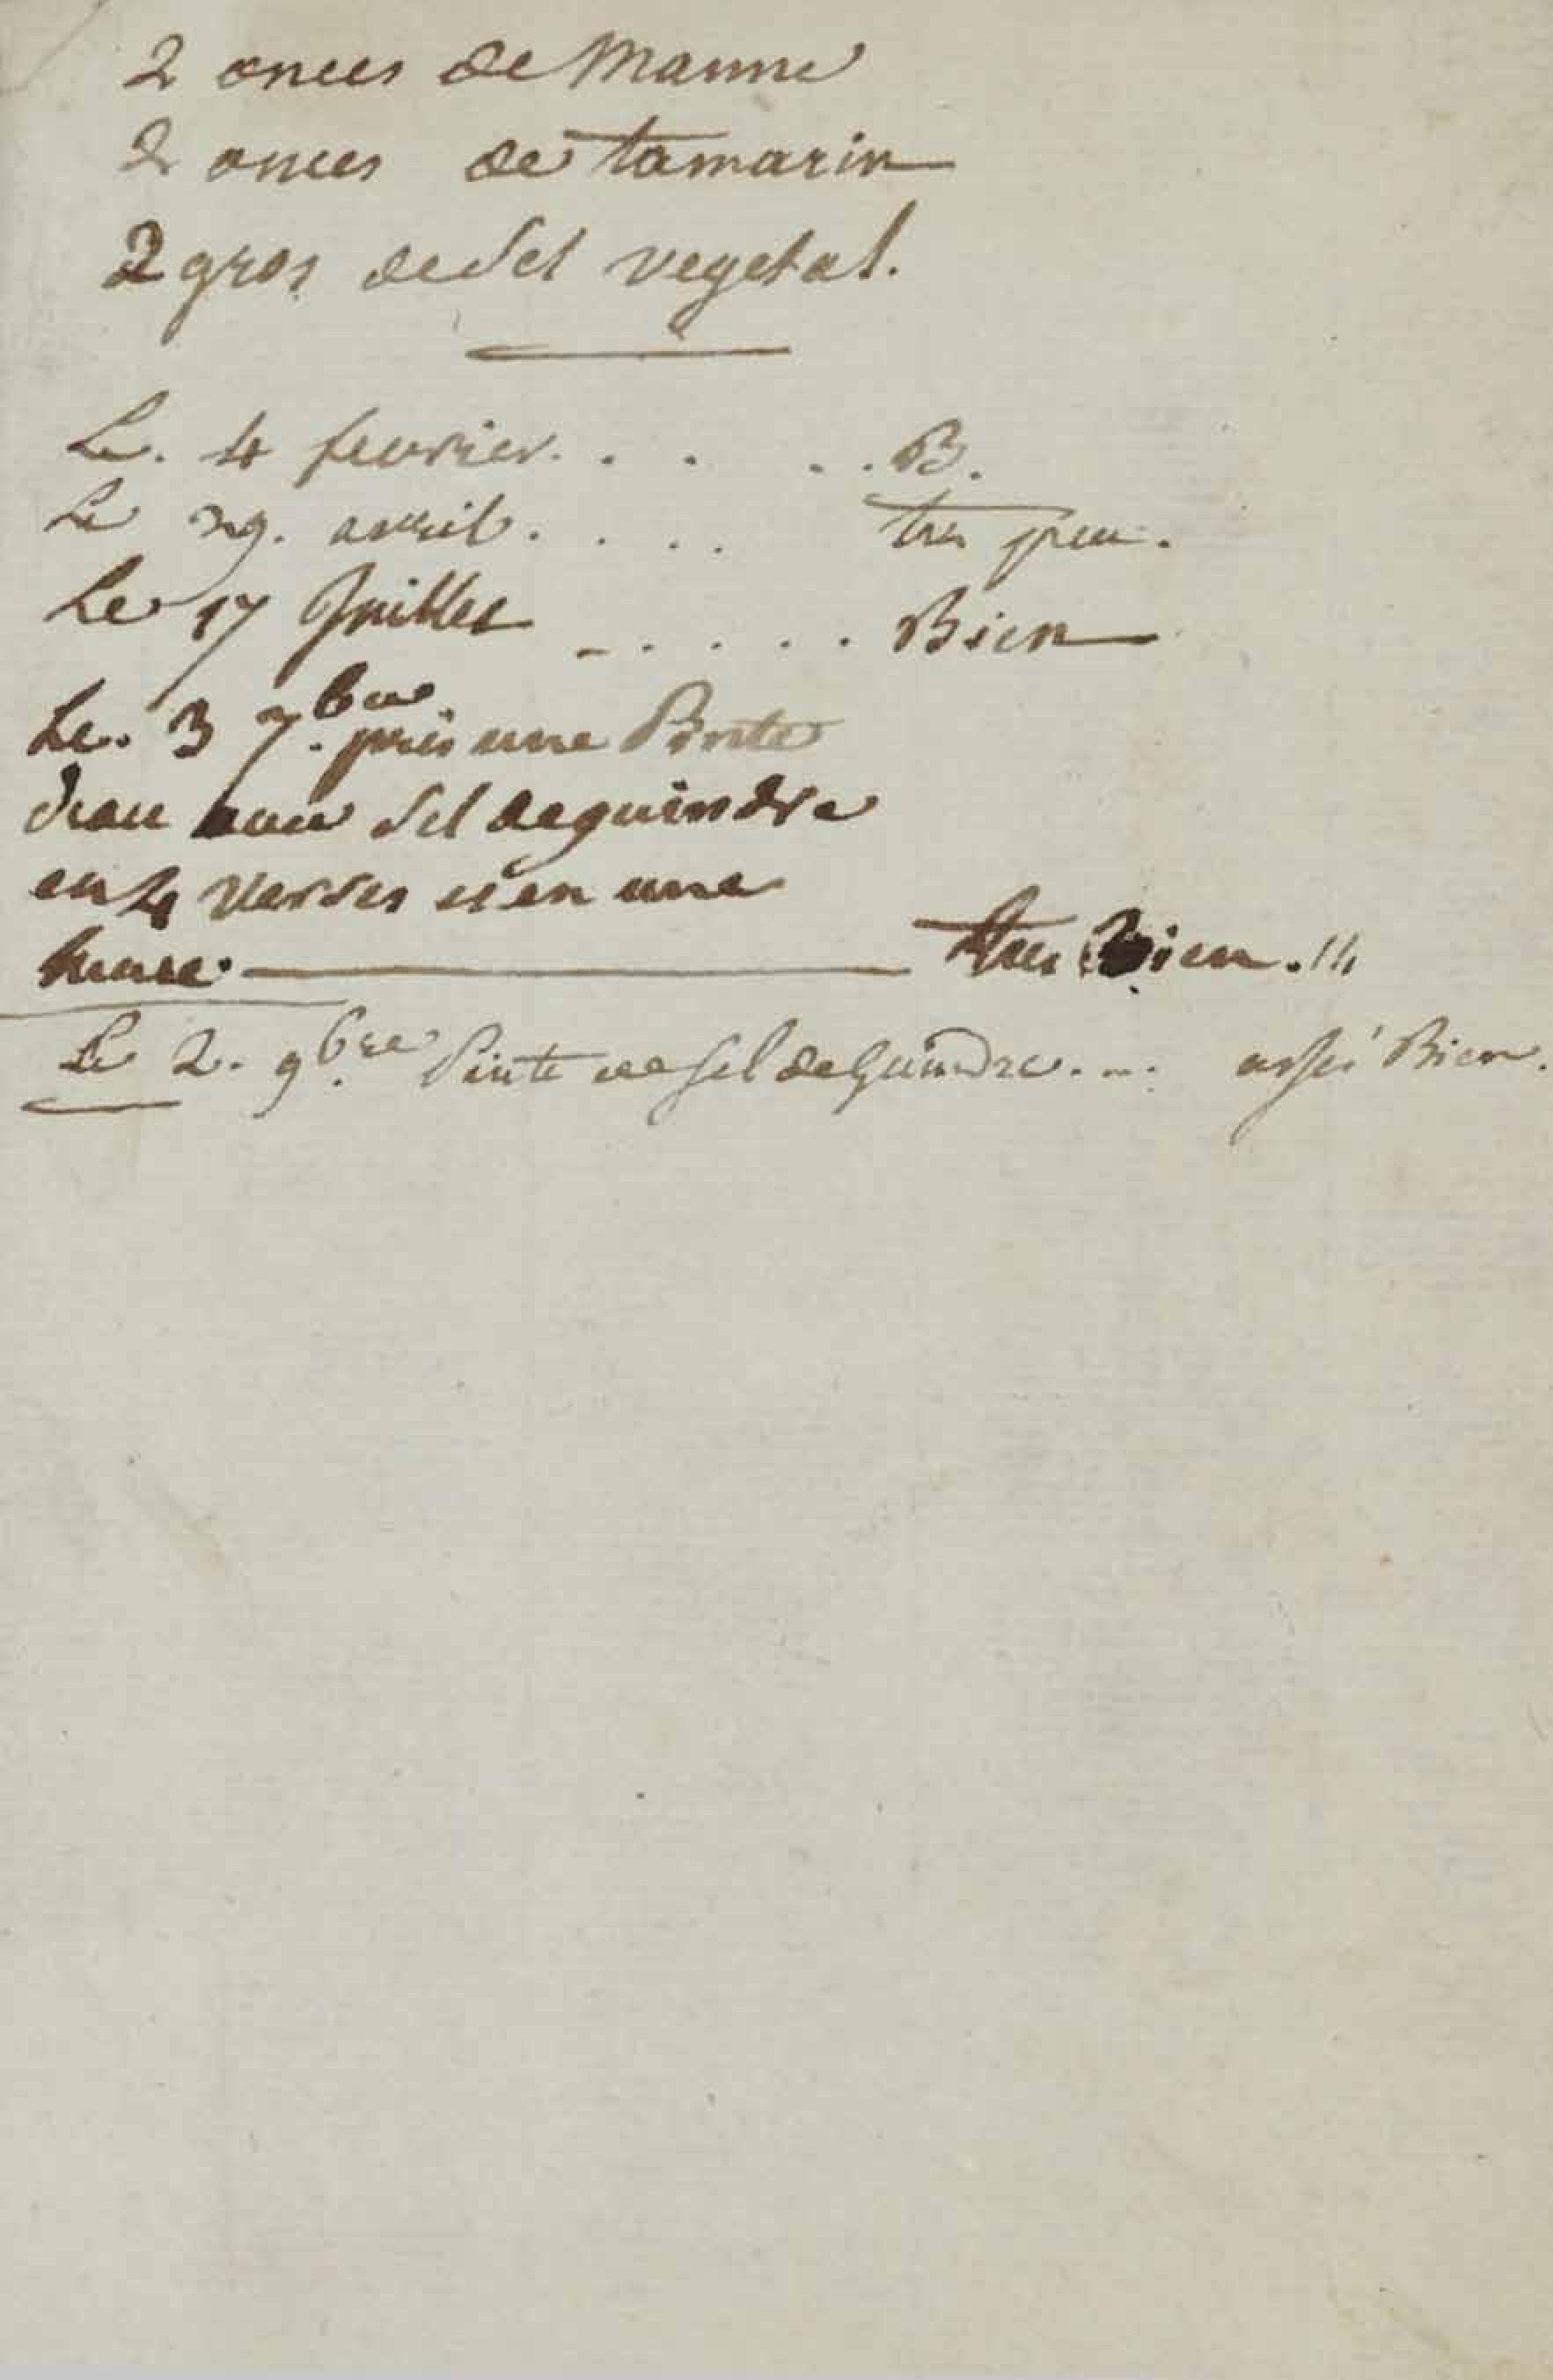 2 onces de Manne
2 onces de tamarin
2 gros de Sel vegetal.
Le. 4 fevrier. . . . . B.
Le 29. avril. . . . tres peu.
Le 17 Juillet - . . . . Bien
Le. 3 7.bre pris une Pinte
deau avec Sel de guindre
en 4 verres et en une
heure. tres Bien.
Le 2. 9bre Pinte de sel de Guindre. ... assés Bien.